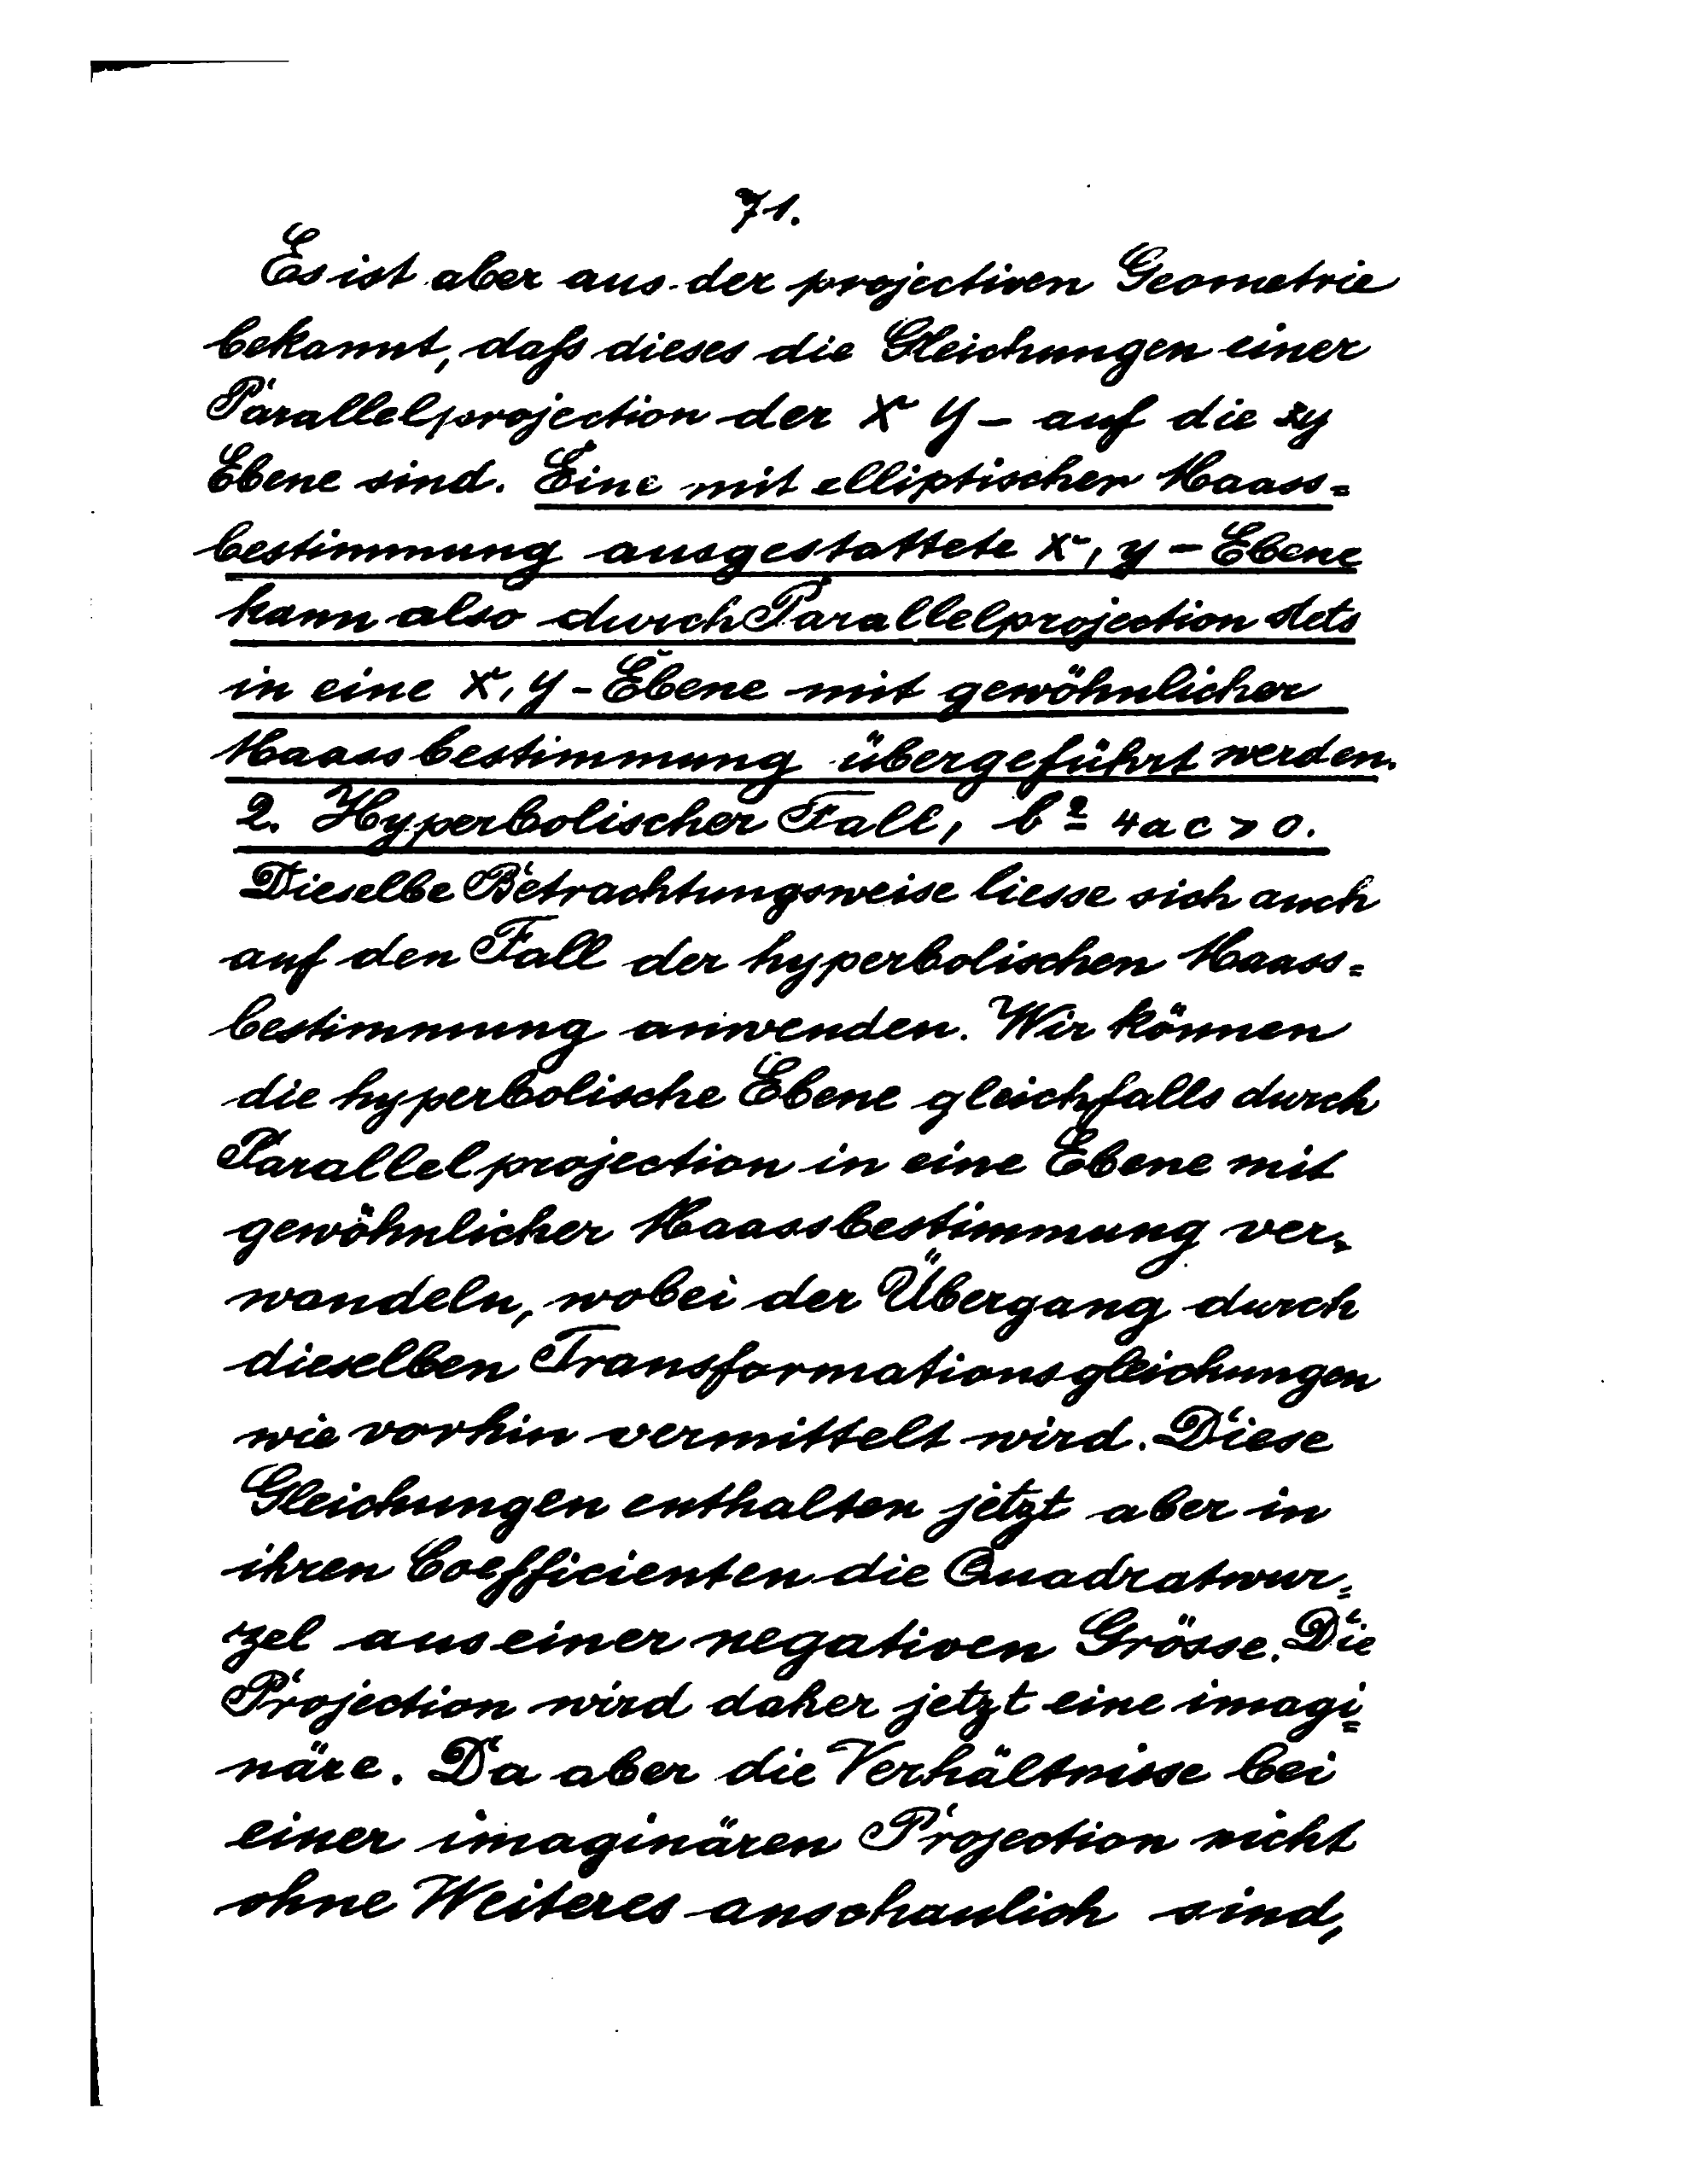 71.
Es ist aber aus der projectiven Geometrie
bekannt, daſs dieses die Gleichungen einer
Parallelprojection der X Y - auf die xy
Ebene sind. Eine mit elliptischer Maass=
bestimmung ausgestattete x, y - Ebene
kann also durch Parallelprojection stets
in eine X, Y - Ebene mit gewöhnlicher
Maassbestimmung übergeführt werden.
2. Hyperbolischer Fall, b² - 4ac > 0.
Dieselbe Betrachtungsweise liesse sich auch
auf den Fall der hyperbolischen Maass=
bestimmung anwenden. Wir können
die hyperbolische Ebene gleichfalls durch
Parallelprojection in eine Ebene mit
gewöhnlicher Maassbestimmung ver=
wandeln, wobei der Übergang durch
dieselben Transformationsgleichungen
wie vorhin vermittelt wird. Diese
Gleichungen enthalten jetzt aber in
ihren Coefficienten die Quadratwur=
zel aus einer negativen Grösse. Die
Projection wird daher jetzt eine imagi=
näre. Da aber die Verhältnisse bei
einer imaginären Projection nicht
ohne Weiteres anschaulich sind,